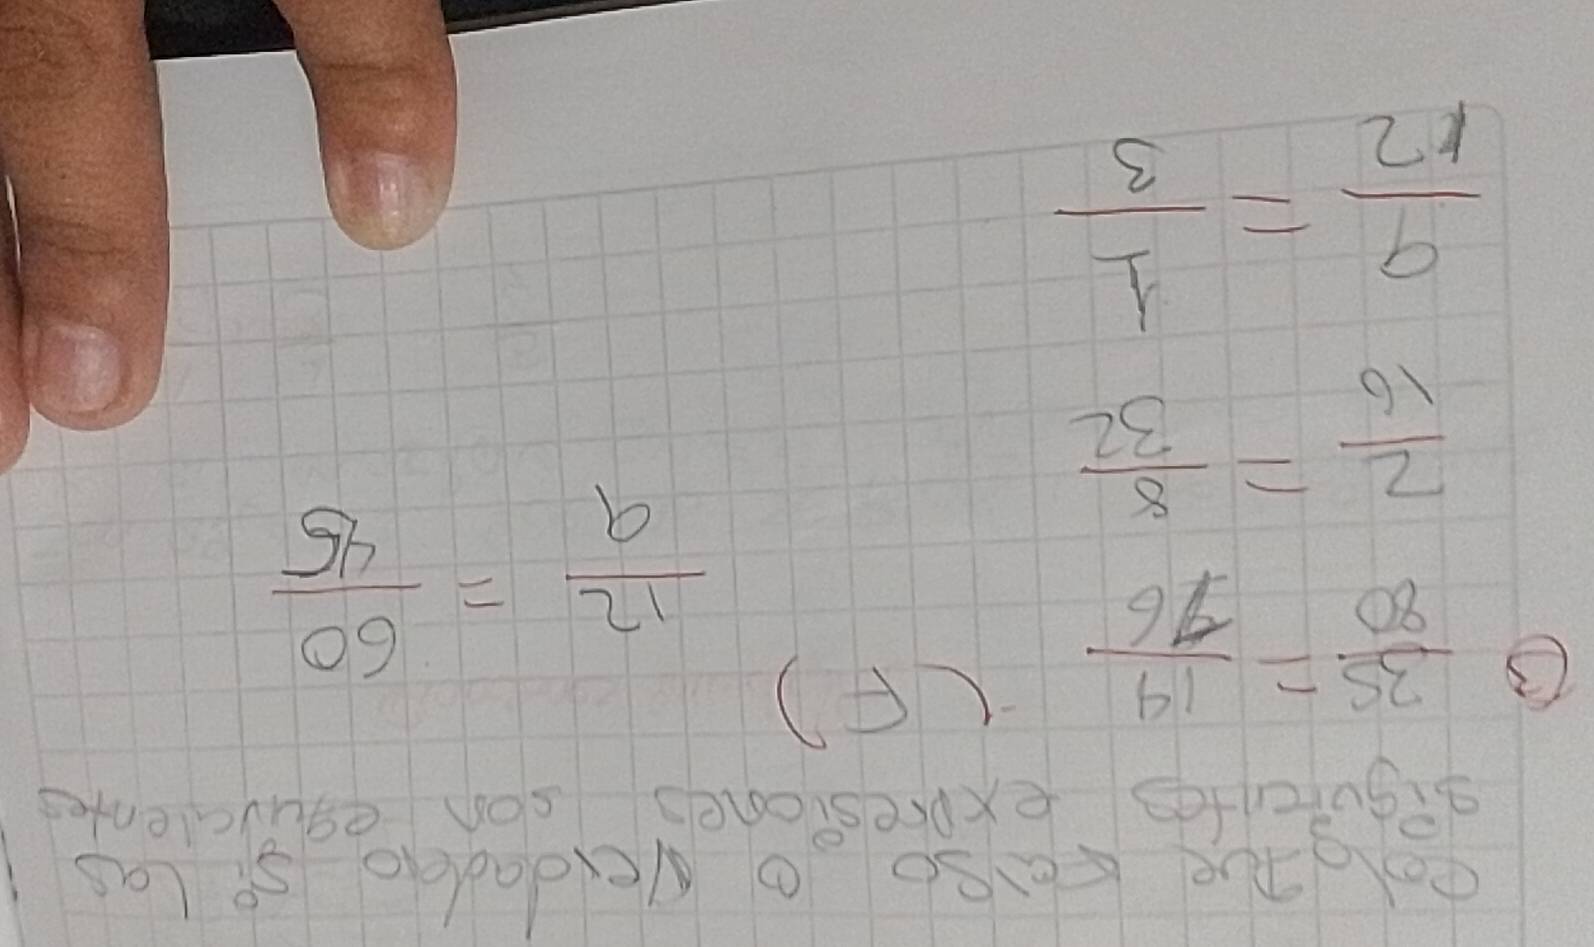 Coloque Falso o Verdadero si las
siguientes expresiones son equivalentes
③ 35/80 = 14/ (F) 12/9 = 60/45
2/16 = 8/32
9/12 = 1/3